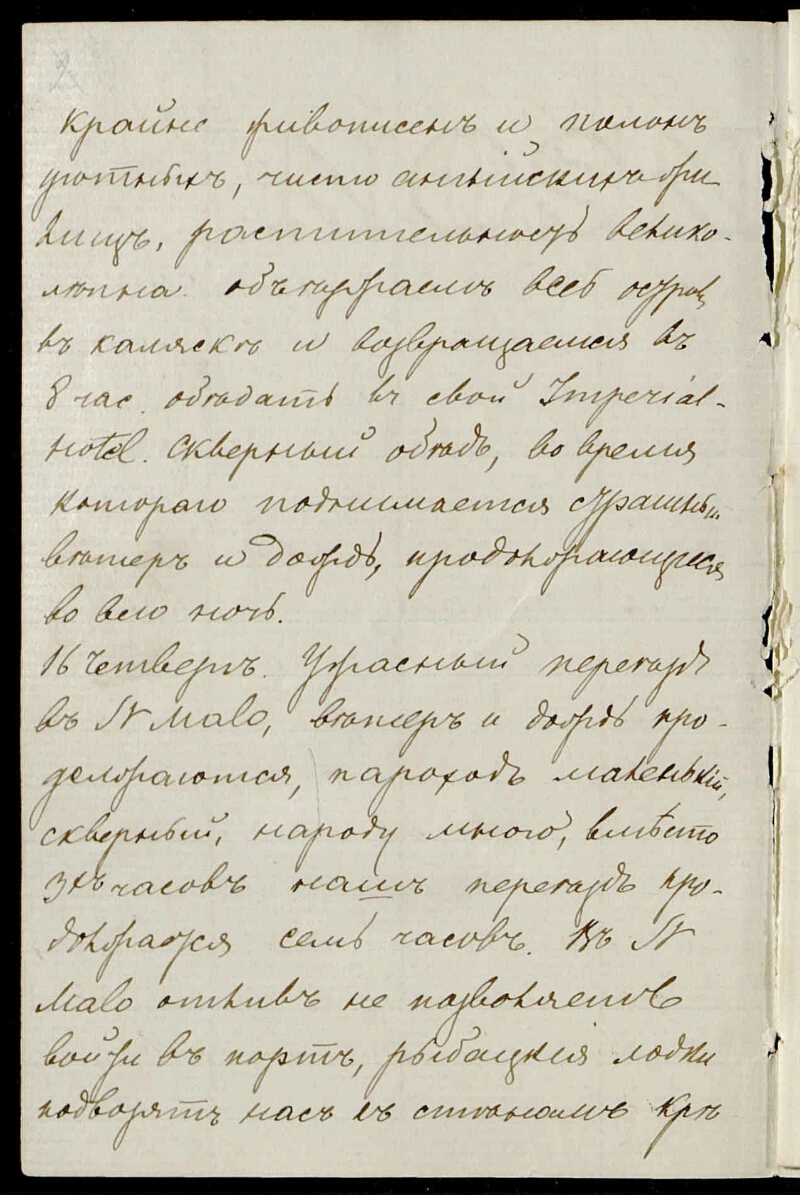 крайне живописенъ и полонъ
уютныхъ, чисто английскихъ жи
лищъ, растительность велико-
лѣпна. объѣзжаемъ весь островъ
въ коляскѣ и возвращаемся въ
8 час. обѣдать въ свой Imperial-
Hotel. Скверный обѣдъ, во время
котораго поднимается страшный
вѣтеръ и дождь, продолжающиеся
во всю ночь.
16 Четвергъ. Ужасный переѣздъ
въ St Malo, вѣтеръ и дождь про-
должаются, пароходъ маленькій,
скверный, народу много, вмѣсто
3хъ часовъ нашъ переѣздъ про-
должается семь часовъ. Въ St
Malo отливъ не позволяетъ
войти въ портъ, рыбацкія лодки
подвозятъ насъ къ стѣнамъ крѣ